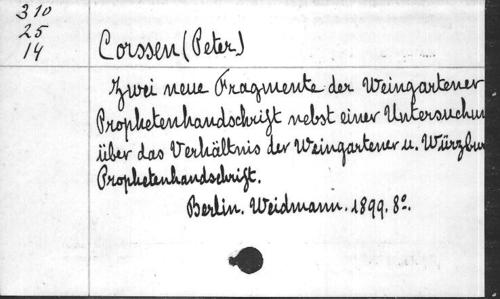 310
25
14
Corssen (Peter)
Zwei neue Fragmente der Weingartener
Prophetenhandschrift nebst einer Untersuchun
über das Verhältnis der Weingartener u. Würzbur
Prophetenhandschrift.
Berlin. Weidmann. 1899. 8°.